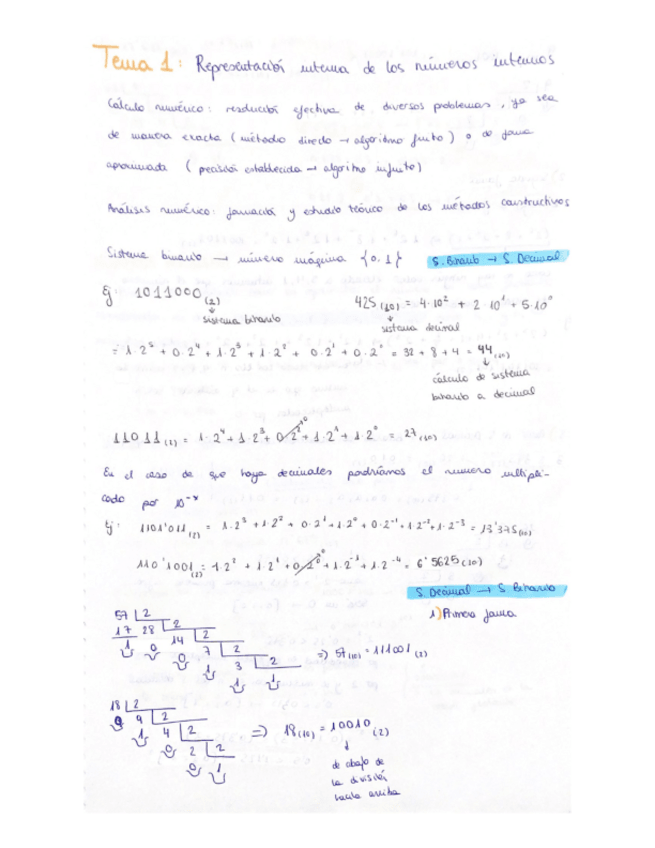 Tema 1: Representación interna de los números internos
Cálculo numérico: resolución efectiva de diversos problemas, ya sea
de manera exacta (método directo → algoritmo finito) o de forma
aproximada (precisión establecida → algoritmo infinito)
Análisis numérico: formación y estudio teórico de los métodos constructivos
Sistema binario → número máquina {0,1}
S. Binario → S. Decimal
Ej 1011000 (2)
sistema binario
425 (10) = 4·10² + 2·10¹ + 5·10⁰
sistema decimal
= 1·2⁵ + 0·2⁴ + 1·2³ + 1·2² + 0·2¹ + 0·2⁰ = 32 + 8 + 4 = 44 (10)
cálculo de sistema
binario a decimal
11011 (2) = 1·2⁴ + 1·2³ + 0·2² + 1·2¹ + 1·2⁰ = 27 (10)
En el caso de que haya decimales podríamos el numero multipli-
cado por 10⁻ˣ
Ej: 1101'011 (2) = 1·2³ + 1·2² + 0·2¹ + 1·2⁰ + 0·2⁻¹ + 1·2⁻² + 1·2⁻³ = 13'375 (10)
110'1001 (2) = 1·2² + 1·2¹ + 0·2⁰ + 1·2⁻¹ + 1·2⁻⁴ = 6'5625 (10)
S. Decimal → S Binario
1) Primera forma
57 2
17 28 2
1 0 14 2
0 7 2
1 3 2
1 1
⇒ 57 (10) = 111001 (2)
18 2
0 9 2
1 4 2
0 2 2
0 1
⇒ 18 (10) = 10010 (2)
de abajo de
la división
hacia arriba